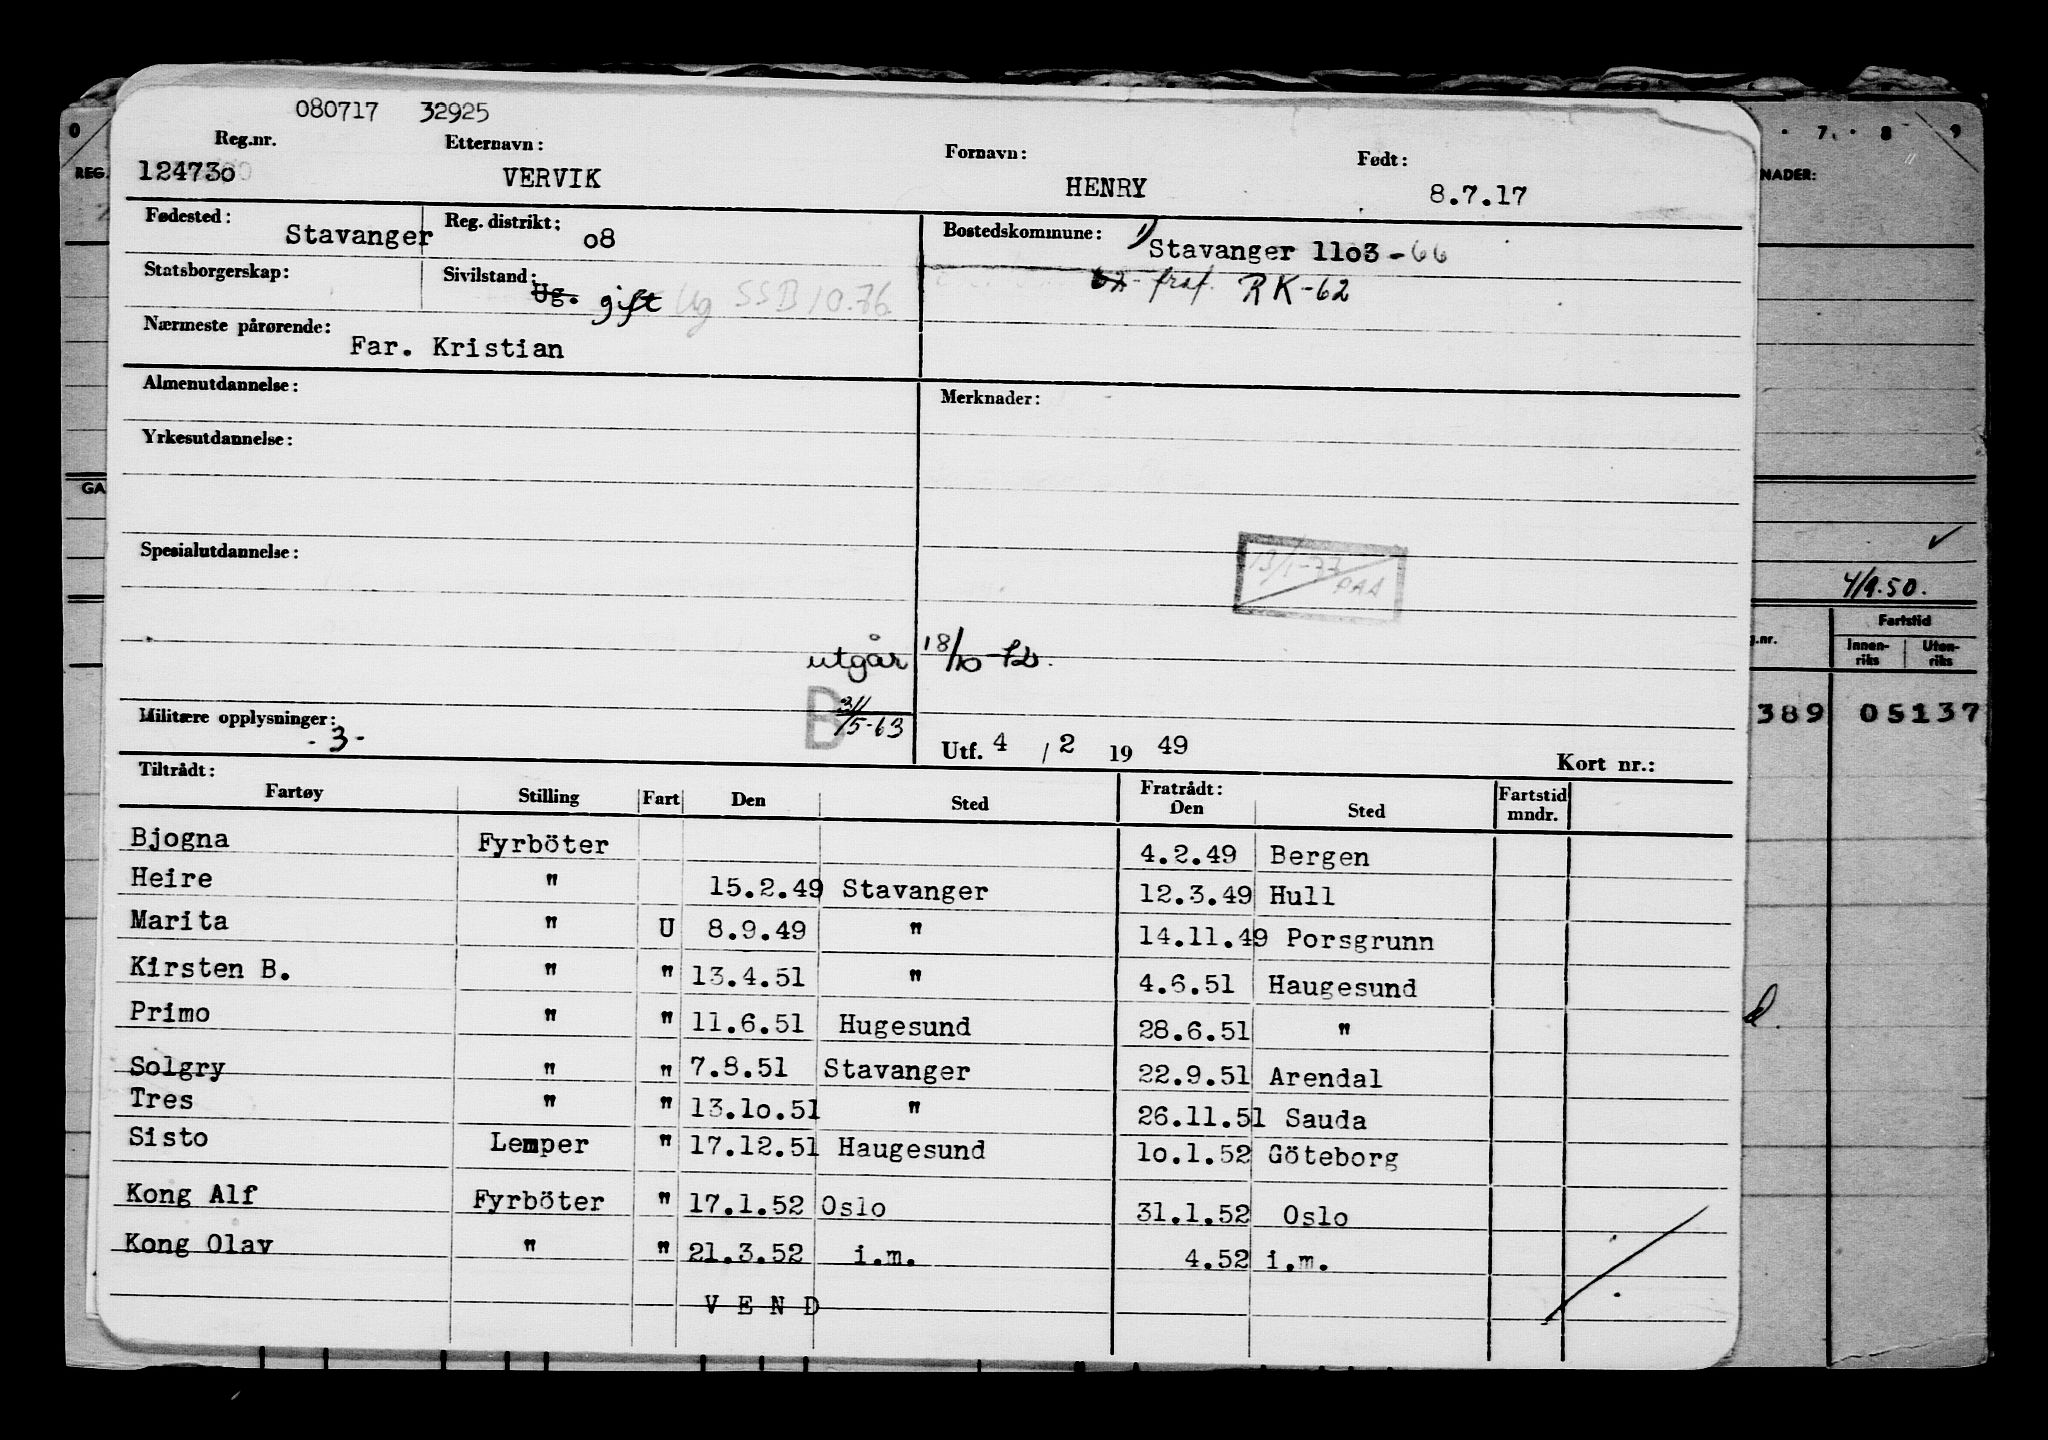 080717 32925
Reg.nr. Etternavn: Fornavn: Født:
124730 VERVIK HENRY 8.7.17
Fødested: Stavanger Reg. distrikt: o8 Bostedskommune: 1) Stavanger 11o3 - 66
Statsborgerskap: Sivilstand: Ug. gift Ug SSB 10.76 62 fraf. RK-62
Nærmeste pårørende: Far. Kristian
Almenutdannelse: Merknader:
Yrkesutdannelse:
Spesialutdannelse:
13/1-77 PAA
utgår 18/10-72.
B 31/5-63
Militære opplysninger: -3-
Utf. 4 / 2 19 49 Kort nr.:
Tiltrådt: Fratrådt:
Fartøy Stilling Fart Den Sted Den Sted Fartstid mndr.
Bjogna Fyrböter 4.2.49 Bergen
Heire " 15.2.49 Stavanger 12.3.49 Hull
Marita " U 8.9.49 " 14.11.49 Porsgrunn
Kirsten B. " " 13.4.51 " 4.6.51 Haugesund
Primo " " 11.6.51 Hugesund 28.6.51 "
Solgry " " 7.8.51 Stavanger 22.9.51 Arendal
Tres " " 13.1o.51 " 26.11.51 Sauda
Sisto Lemper " 17.12.51 Haugesund 1o.1.52 Göteborg
Kong Alf Fyrböter " 17.1.52 Oslo 31.1.52 Oslo
Kong Olav " " 21.3.52 i.m. 4.52 i.m.
V E N D
0
REG.
GA
7 . 8 9
NADER:
4/9.50.
Fartstid
.nr. Innenriks Utenriks
389 05137
d.